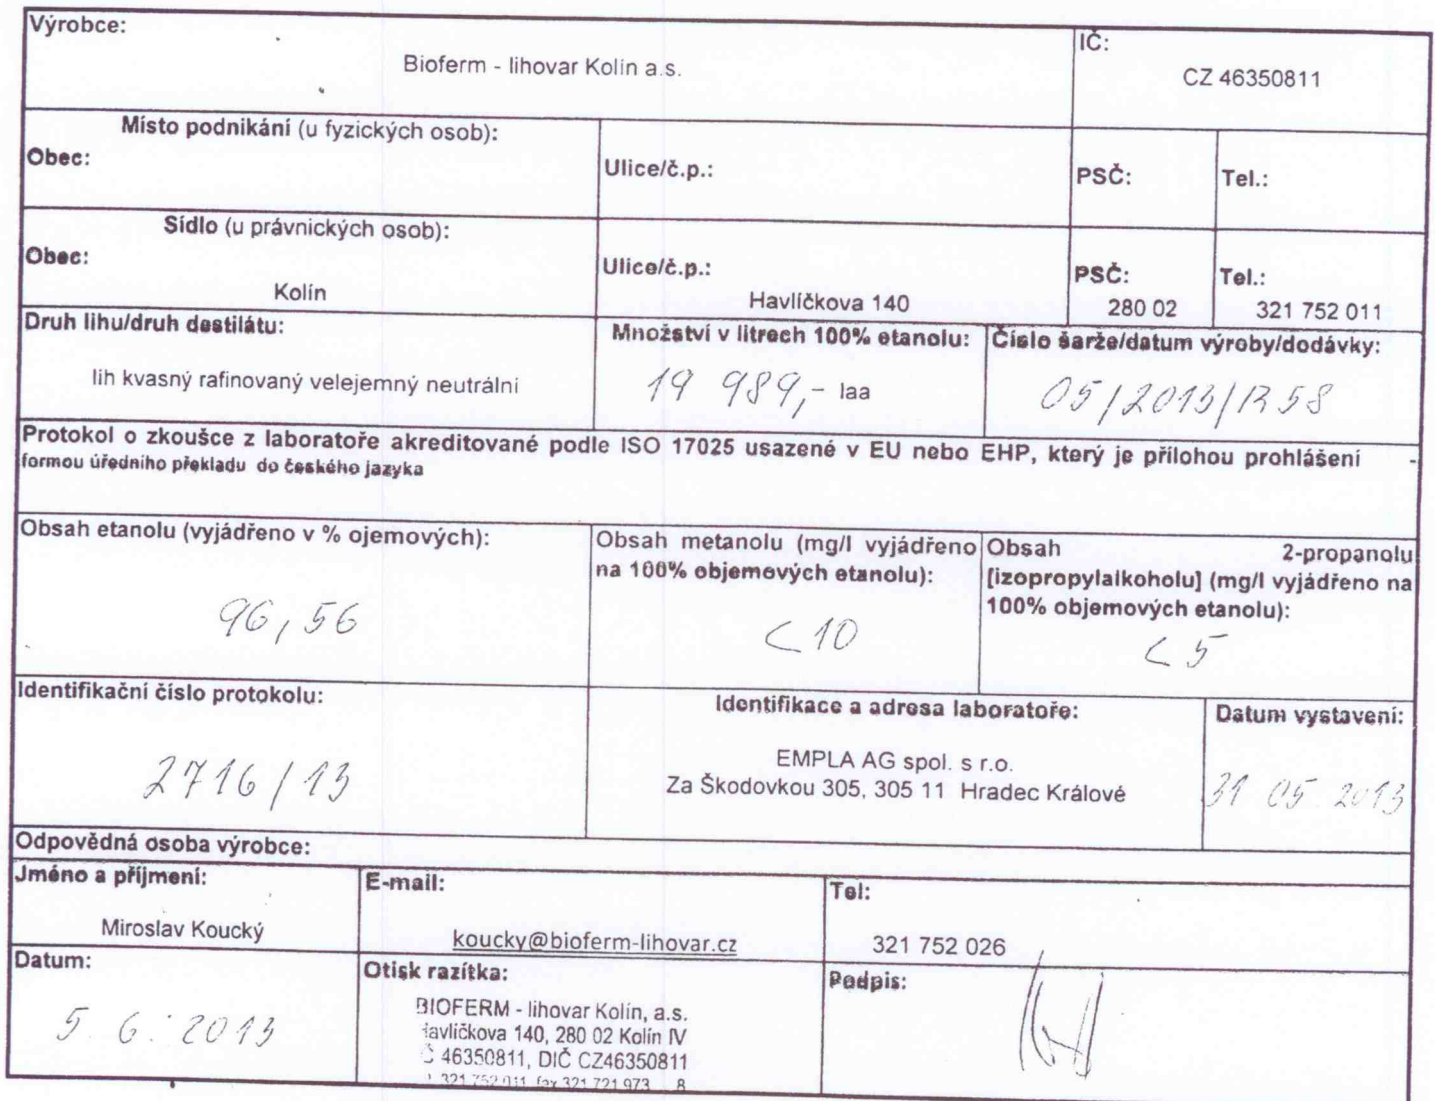 Výrobce:
Bioferm - lihovar Kolín a.s.
IČ:
CZ 46350811
Místo podnikání (u fyzických osob):
Obec:
Ulice/č.p.:
PSČ:
Tel.:
Sídlo (u právnických osob):
Obec:
Kolín
Ulice/č.p.:
Havlíčkova 140
PSČ:
280 02
Tel.:
321 752 011
Druh lihu/druh destilátu:
lih kvasný rafinovaný velejemný neutrální
Množství v litrech 100% etanolu:
19 989,- laa
Číslo šarže/datum výroby/dodávky:
05/2013/R58
Protokol o zkoušce z laboratoře akreditované podle ISO 17025 usazené v EU nebo EHP, který je přílohou prohlášení -
formou úředního překladu do českého jazyka
Obsah etanolu (vyjádřeno v % ojemových):
96,56
Obsah metanolu (mg/l vyjádřeno
na 100% objemových etanolu):
<10
Obsah 2-propanolu
[izopropylalkoholu] (mg/l vyjádřeno na
100% objemových etanolu):
<5
Identifikační číslo protokolu:
2716/13
Identifikace a adresa laboratoře:
EMPLA AG spol. s r.o.
Za Škodovkou 305, 305 11 Hradec Králové
Datum vystavení:
31 05 2013
Odpovědná osoba výrobce:
Jméno a příjmení:
Miroslav Koucký
E-mail:
koucky@bioferm-lihovar.cz
Tel:
321 752 026
Datum:
5. 6. 2013
Otisk razítka:
BIOFERM - lihovar Kolín, a.s.
Havlíčkova 140, 280 02 Kolín IV
Č 46350811, DIČ CZ46350811
321 752 011, fax 321 721 973 8
Podpis: